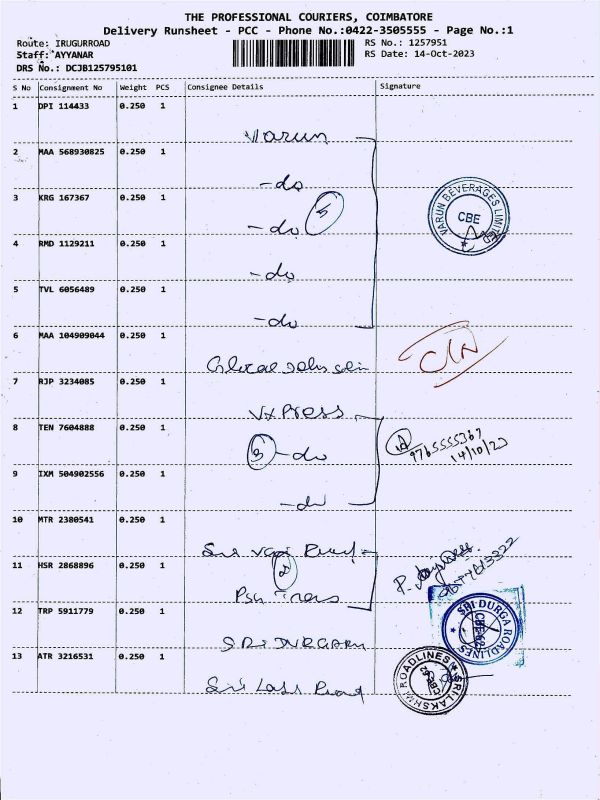 THE PROFESSIONAL COURIERS, COIMBATORE
Delivery Runsheet - PCC - Phone No.:0422-3505555 - Page No.:1
Route: IRUGURROAD
Staff: AYYANAR
DRS No.: DCJB125795101
RS No.: 1257951
RS Date: 14-Oct-2023
S No Consignment No Weight PCS Consignee Details Signature
1 DPI 114433 0.250 1
Varun
2 MAA 568930825 0.250 1
-do
3 KRG 167367 0.250 1
-do 5
VARUN BEVERAGES LIMITED
CBE
4 RMD 1129211 0.250 1
-do
5 TVL 6056489 0.250 1
-do
6 MAA 104909044 0.250 1
7 RJP 3234085 0.250 1
VXPress
8 TEN 7604888 0.250 1
3 -do
9765555367
14/10/23
9 IXM 504902556 0.250 1
-do
10 MTR 2380541 0.250 1
Sri
11 HSR 2868896 0.250 1
2
12 TRP 5911779 0.250 1
SRI DURGA ROADLINES
13 ATR 3216531 0.250 1
Sri
SRI LAKSHMI ROADLINES